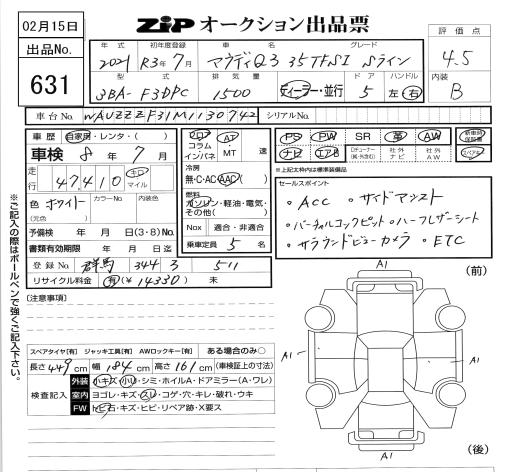 02月15日
ZIP オークション出品票
出品No.
631
年式 初年度登録 車名 グレード
2021 R3年7月 アウディQ3 35TFSI Sライン
型式 排気量 ドア ハンドル
3BA-F3DPC 1500 ディーラー・並行 5 左 右
評価点
4.5
内装
B
車台No. WAUZZZF31M1130742 シリアルNo.
車歴 自家用・レンタ・( )
車検 8年 7月
走行 47,410 キロ マイル
色 ホワイト カラーNo. 内装色
(元色)
予備検 年 月 日(3・8)No.
書類有効期限 年 月 日迄
登録No. 群馬 344 3 511
リサイクル料金 有(¥14330) 未
フロア コラム インパネ AT・MT 速
冷房
無・C・AC・AAC
燃料
ガソリン・軽油・電気・その他( )
Nox 適合・非適合
乗車定員 5 名
PS PW SR 革 AW 新車時保証書
ナビ エアB 社外ナビ 社外AW スペアキー
※上記太枠内は標準装備品
セールスポイント
・ACC ・サイドアシスト
・バーチャルコックピット ・ハーフレザーシート
・サラウンドビューカメラ ・ETC
[注意事項]
スペアタイヤ[有] ジャッキ工具[有] AWロックキー[有] ある場合のみ○
長さ 449 cm 幅 184 cm 高さ 161 cm (車検証上の寸法)
検査記入
外装 小キズ・小凹・シミ・ホイルA・ドアミラー(A・ワレ)
室内 ヨゴレ・キズ・スレ・コゲ・穴・キレ・破れ・ウキ
FW トビ石・キズ・ヒビ・リペア跡・X要ス
※ご記入の際はボールペンで強くご記入下さい。
A1
(前)
A1
A1
A1
(後)